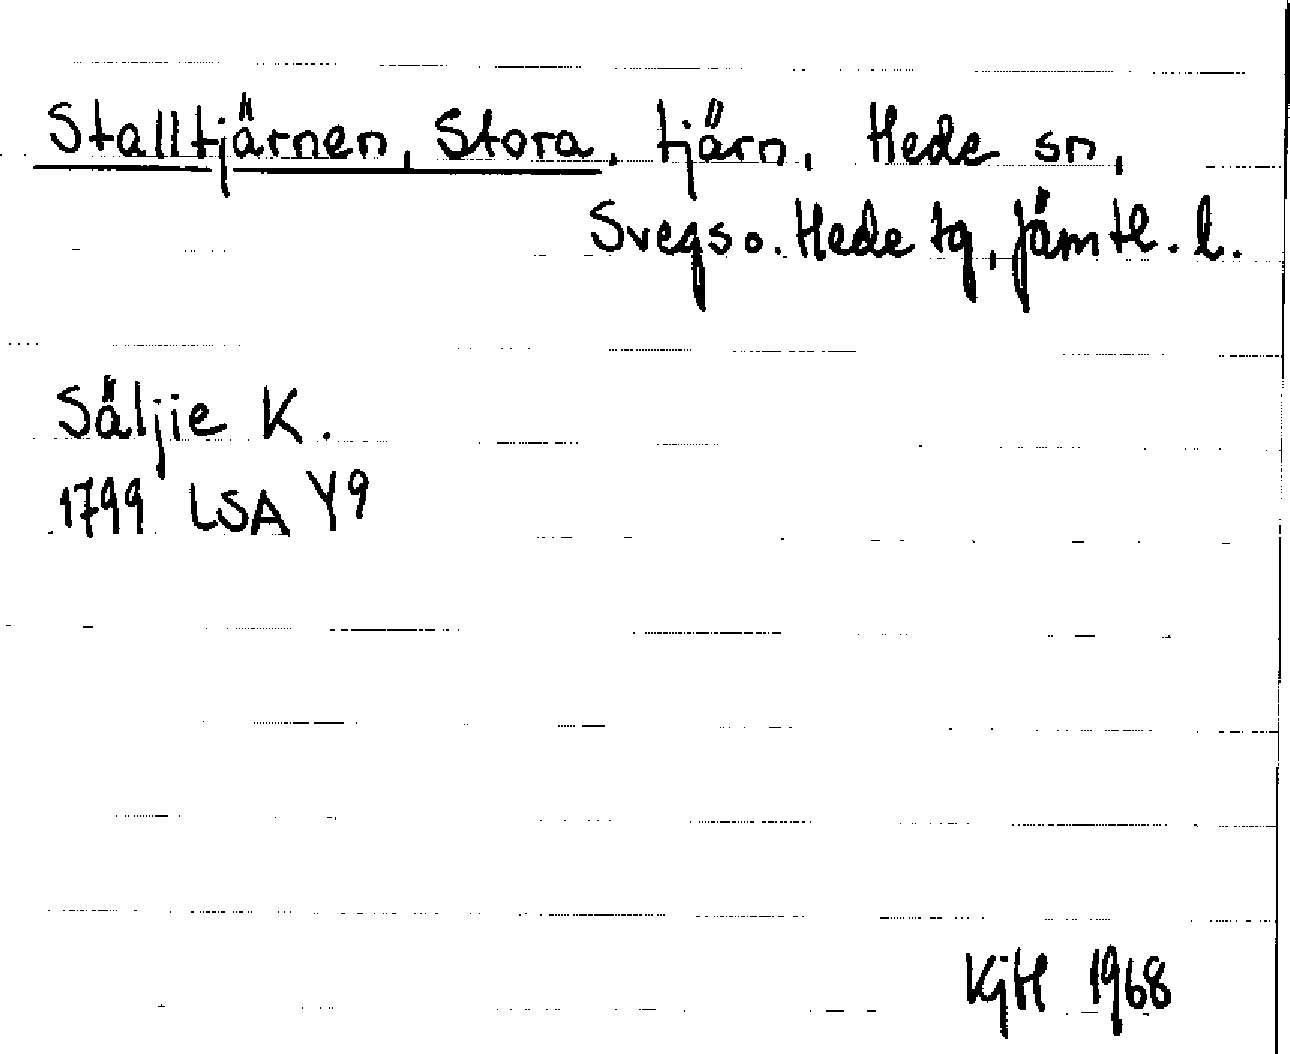 Stalltjärnen, Stora, tjärn, Hede sn,
Svegs o. Hede tg, Jämtl. l.
Säljie K.
1799 LSA Y9
KjH 1968